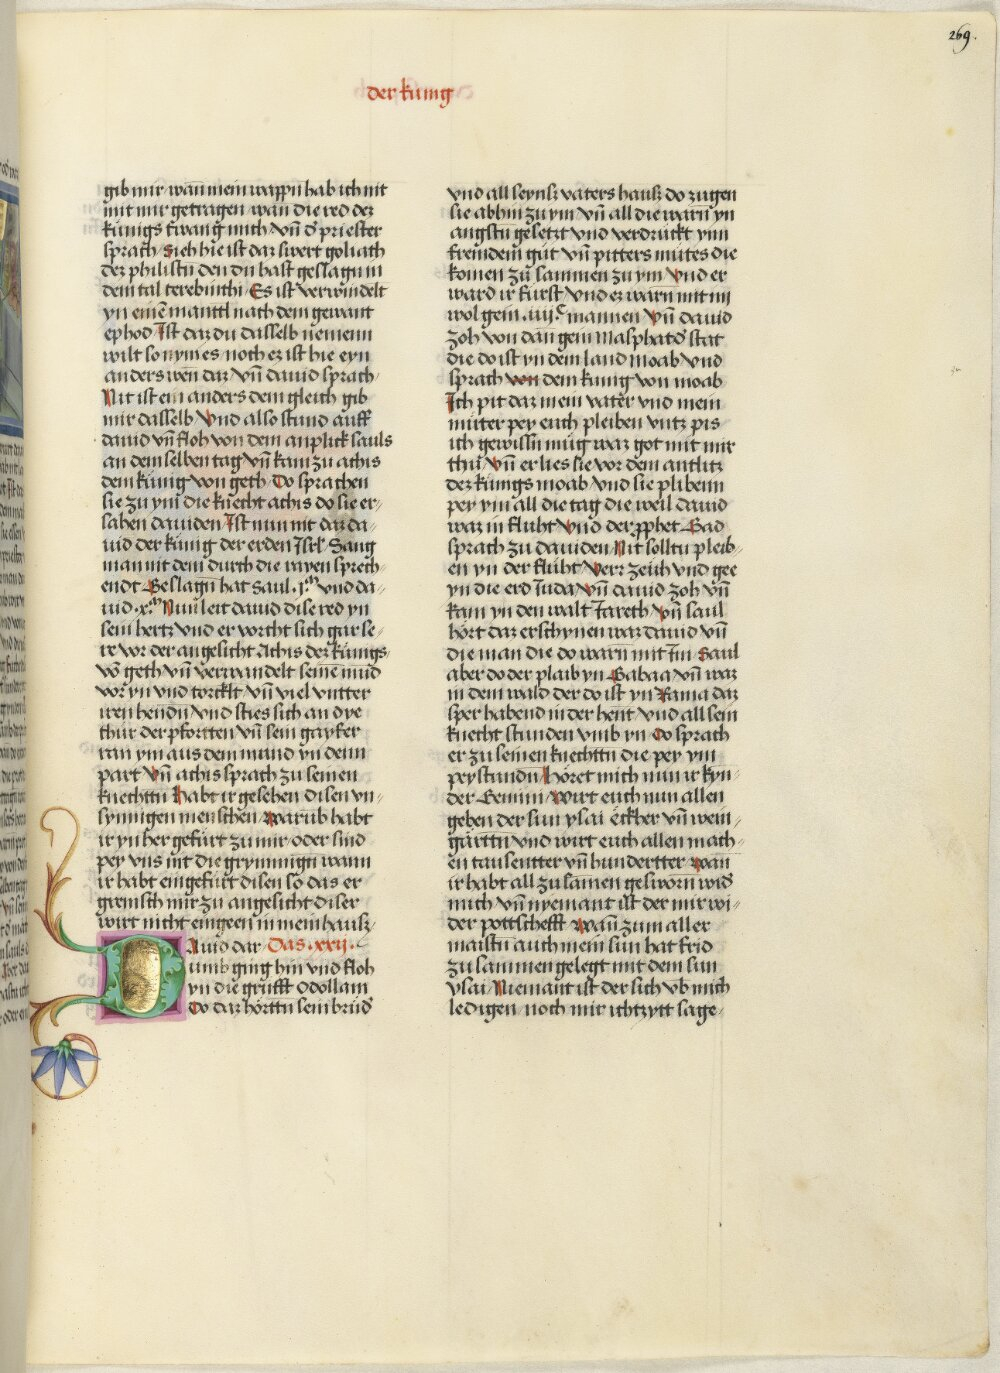 269.
der kunig
gib mir wan mein wappn hab ich nit
mit mir getragen wan die red dez
kunigs twang mich vn̄ d̓ priester
sprach Sieh hie ist daz swert goliath
dez philistn den du hast geslagn in
dem tal terebinthi Es ist verwindelt
yn eine͂ manttl nach dem gewant
ephod Ist daz du dasselb nemenn
wilt so nym es noch ez ist hie eyn
anders wen daz vn̄ dauid sprach
Nit ist ein anders dem gleich gib
mir dasselb Vnd also stund auff
dauid vn̄ floh von dem anplick sauls
an dem selben tag vn̄ kam zu achis
dem kunig von geth Do sprachen
sie zu ym die knecht achis do sie er-
sahen dauiden Ist nun nit daz da-
uid der kunig der erden Isrl̓ Sang
man nit dem durch die rayen sprech-
endt Geslagn hat saul .j.m vnd da-
uid .x.m Nun leit dauid dise red yn
sein hertz vnd er vorcht sich gar se-
re vor der angesicht Achis dez kunigs
vō geth vn̄ verwandelt seine͂ mūd
vor yn vnd torcklt vn̄ viel vntter
iren hendn vnd sties sich an dye
thur der pfortten vn̄ sein gayfer
ran ym aus dem mund yn denn
part Vn̄ achis sprach zu seinen
knechttn Habt ir gesehen disen vn-
synnigen menschen warūb habt
ir yn her gefurt zu mir oder sind
pey vns nit die grymmign wann
ir habt eingefurt disen so das er
grensch mir zu angesicht diser
wirt nicht eingeen in mein hausz
Dauid dar Das .xxij.
umb ging hin vnd floh
yn die grufft Odollam
Do daz hörttn sein brud̓
vnd all seynsz vaters hausz do zugen
sie abhin zu ym vn̄ all die warn yn
angstn gesetzt vnd verdruckt ynn
fremdem gut vn̄ pitters mutes die
komen zu sammen zu ym Vnd er
ward ir furst vnd ez warn mit im
wol gein .iiij.c mannen Vn̄ dauid
zoh von dan gein Masphat d̓ stat
die do ist yn dem land moab vnd
sprach von dem kunig von moab
Ich pit daz mein vater vnd mein
muter pey euch pleiben vntz pis
ich gewissn mug waz got mit mir
thu Vn̄ er lies sie vor dem antlitz
dez kunigs moab vnd sie plibenn
pey ym all die tag die weil dauid
waz in fluht Vnd der pphet Gad
sprach zu dauiden Nit solltu pleib-
en yn der fluht Verr zeuch vnd gee
yn die erd Iuda Vn̄ dauid zoh vn̄
kam yn den walt Iareth Vn̄ saul
hört daz erschynen waz dauid vn̄
die man die do warn mit Im Saul
aber do der plaib yn Gabaa vn̄ waz
in dem wald der do ist yn Rama daz
sper habend in der hent vnd all sein
knecht stunden vmb yn Do sprach
er zu seinen knechttn die pey ym
peystandn Höret mich nun ir kyn-
der Gemini Wirt euch nun allen
geben der sun ysai eckher vn̄ wein-
gärttn vnd wirt euch allen mach-
en tausentter vn̄ hundertter wan
ir habt all zu samen gesworn wid̓
mich vn̄ nyemant ist der mir wi-
der pottschefft Wan̄ zum aller
maistn auch mein sun hat frid
zu sammen gelegt mit dem sun
ysai Niemant ist der sich vb mich
ledigen noch mir ichtzytt sage-